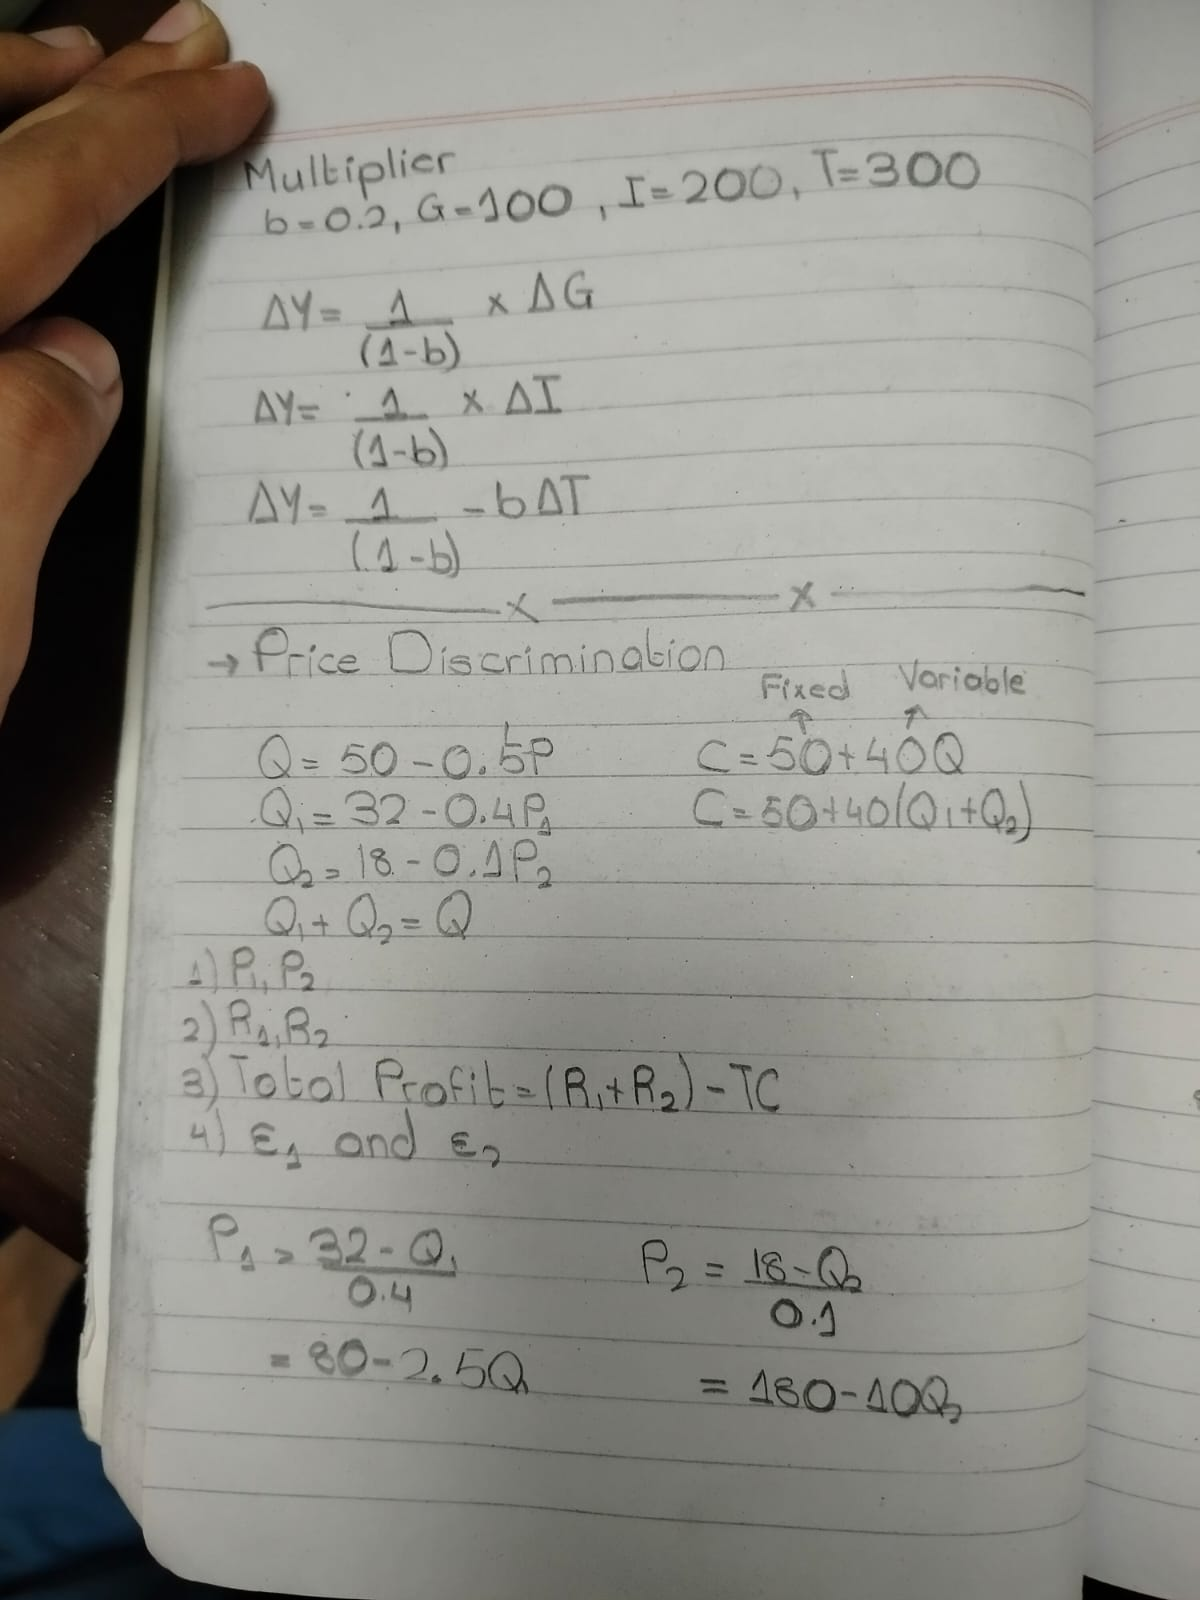 Multiplier
b=0.2, G=100, I=200, T=300
ΔY= 1/(1-b) x ΔG
ΔY= 1/(1-b) x ΔI
ΔY= 1/(1-b) -bΔT
x x
→ Price Discrimination
Fixed Variable
↑ ↑
Q= 50-0.5P C=50+40Q
Q₁=32-0.4P₁ C=50+40(Q₁+Q₂)
Q₂=18-0.1P₂
Q₁+Q₂=Q
1) P₁, P₂
2) R₁, R₂
3) Total Profit=(R₁+R₂)-TC
4) ε₁ and ε₂
P₁ = 32-Q₁/0.4 P₂ = 18-Q₂/0.1
= 80-2.5Q₁ = 180-10Q₂